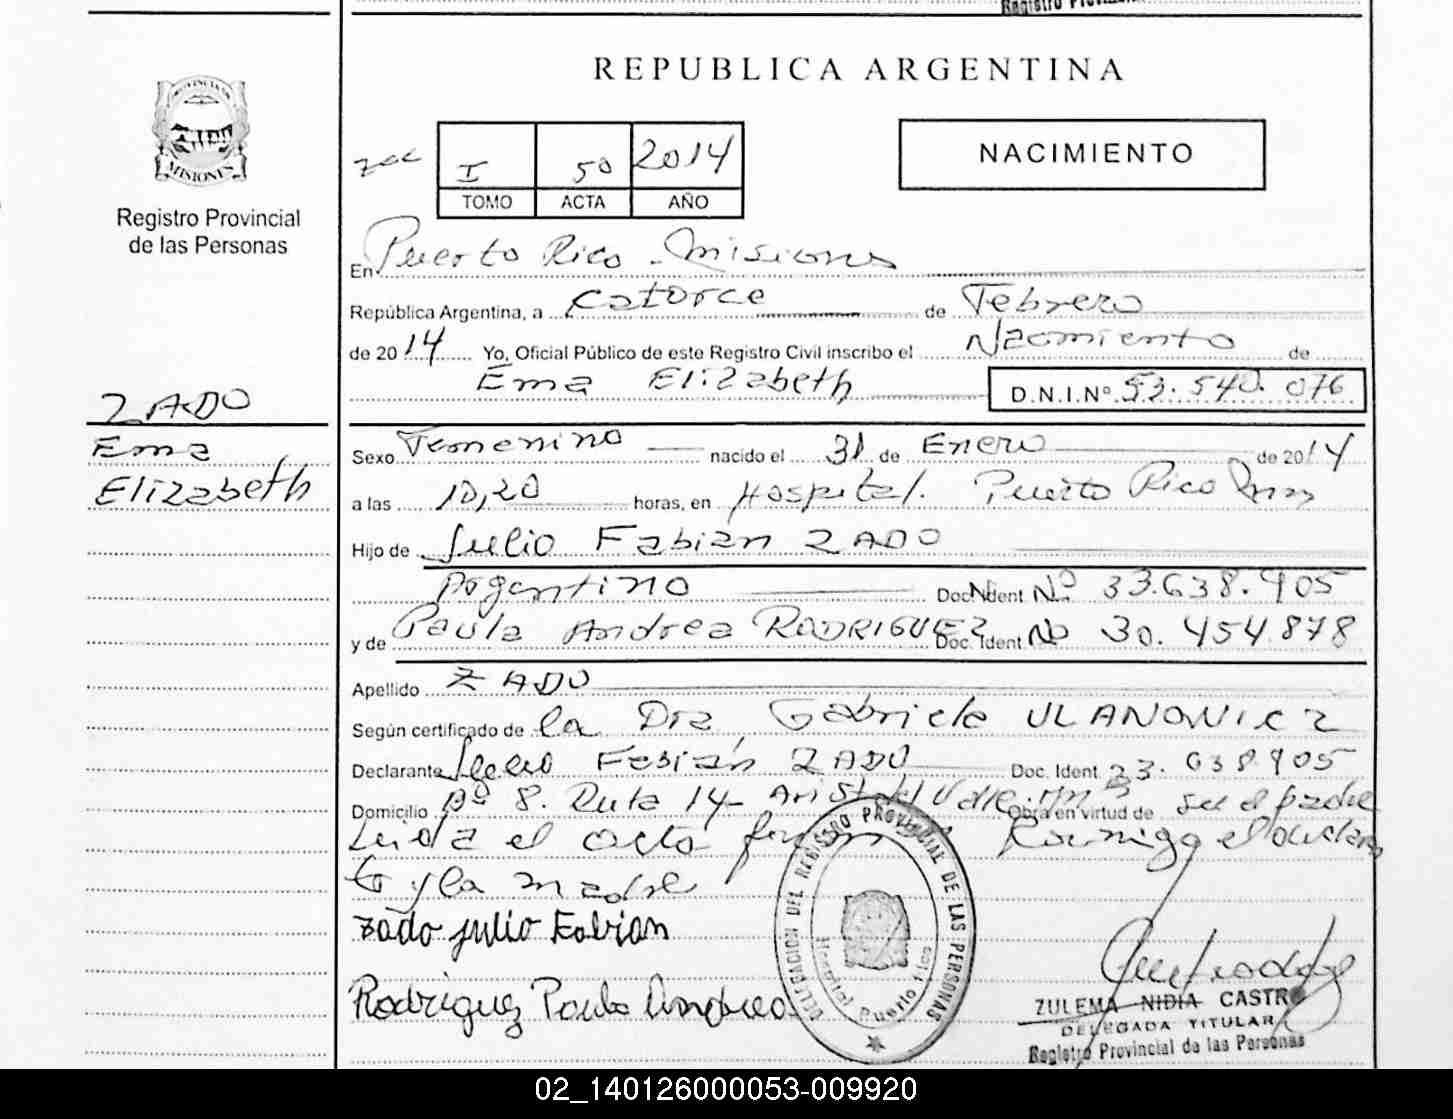 Registro Provincial
REPUBLICA ARGENTINA
PROVINCIA DE
MISIONES
Registro Provincial
de las Personas
I 50 2014
TOMO ACTA AÑO
NACIMIENTO
En Puerto Rico - Misiones
República Argentina, a Catorce de Febrero
de 2014 Yo, Oficial Público de este Registro Civil inscribo el Nacimiento de
Ema Elizabeth D.N.I.Nº 53.540.076
ZADO
Ema
Elizabeth
Sexo Femenino nacido el 31 de Enero de 2014
a las 10,20 horas, en Hospital. Puerto Rico
Hijo de Julio Fabian ZADO
Argentino Doc. Ident Nº 33.638.905
y de Paula Andrea RODRIGUEZ Doc. Ident Nº 30.454.878
Apellido ZADO
Según certificado de la Dra Gabriela ULANOWICZ
Declarante Julio Fabián ZADO Doc. Ident 33.638.905
Domicilio Kº 8. Ruta 14 Aristobulo Obra en virtud de su padre
Leida el acta Conmigo el
y la madre
zado julio Fabian
Rodriguez Paula Andrea
DELEGACION DEL REGISTRO PROVINCIAL DE LAS PERSONAS
Hospital Puerto Rico
ZULEMA NIDIA CASTRO
DELEGADA TITULAR
Registro Provincial de las Personas
02_140126000053-009920